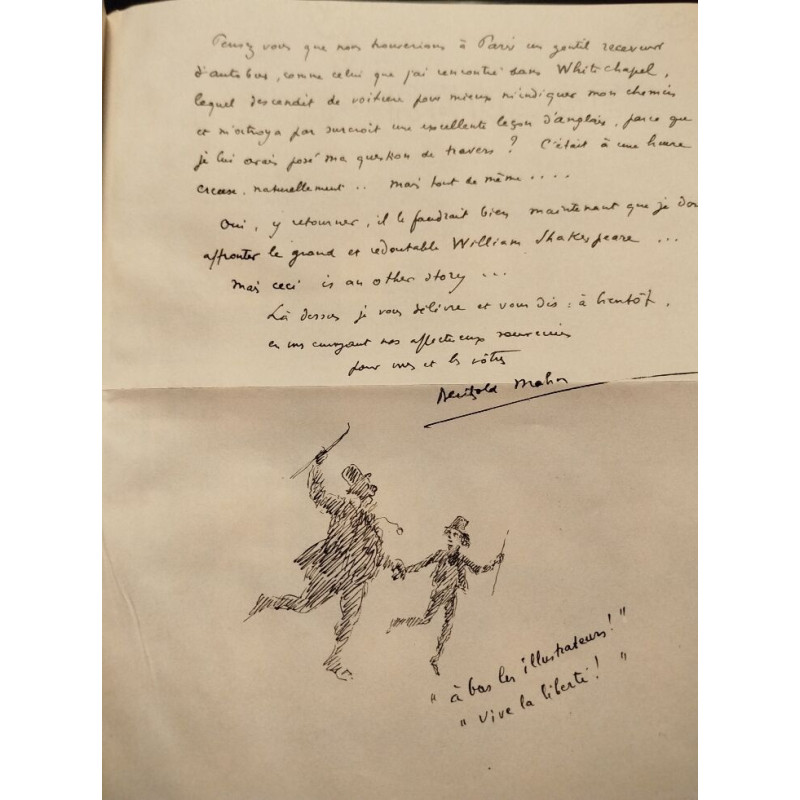 Pensez vous que nous trouverions à Paris un gentil receveur
d'autobus, comme celui que j'ai rencontré dans Whitechapel,
lequel descendit de voiture pour mieux m'indiquer mon chemin
et m'octroya par surcroît une excellente leçon d'anglais, parce que
je lui avais posé ma question de travers ? C'était à une heure
creuse, naturellement .. mais tout de même ....
Oui, y retourner, il le faudrait bien maintenant que je dois
affronter le grand et redoutable William Shakespeare ...
mais ceci is an other story ...
Là dessus je vous délivre et vous dis : à bientôt,
en vous envoyant nos affectueux souvenirs
pour vous et les vôtres
Berthold Mahn
" à bas les illustrateurs ! "
" Vive la liberté ! "